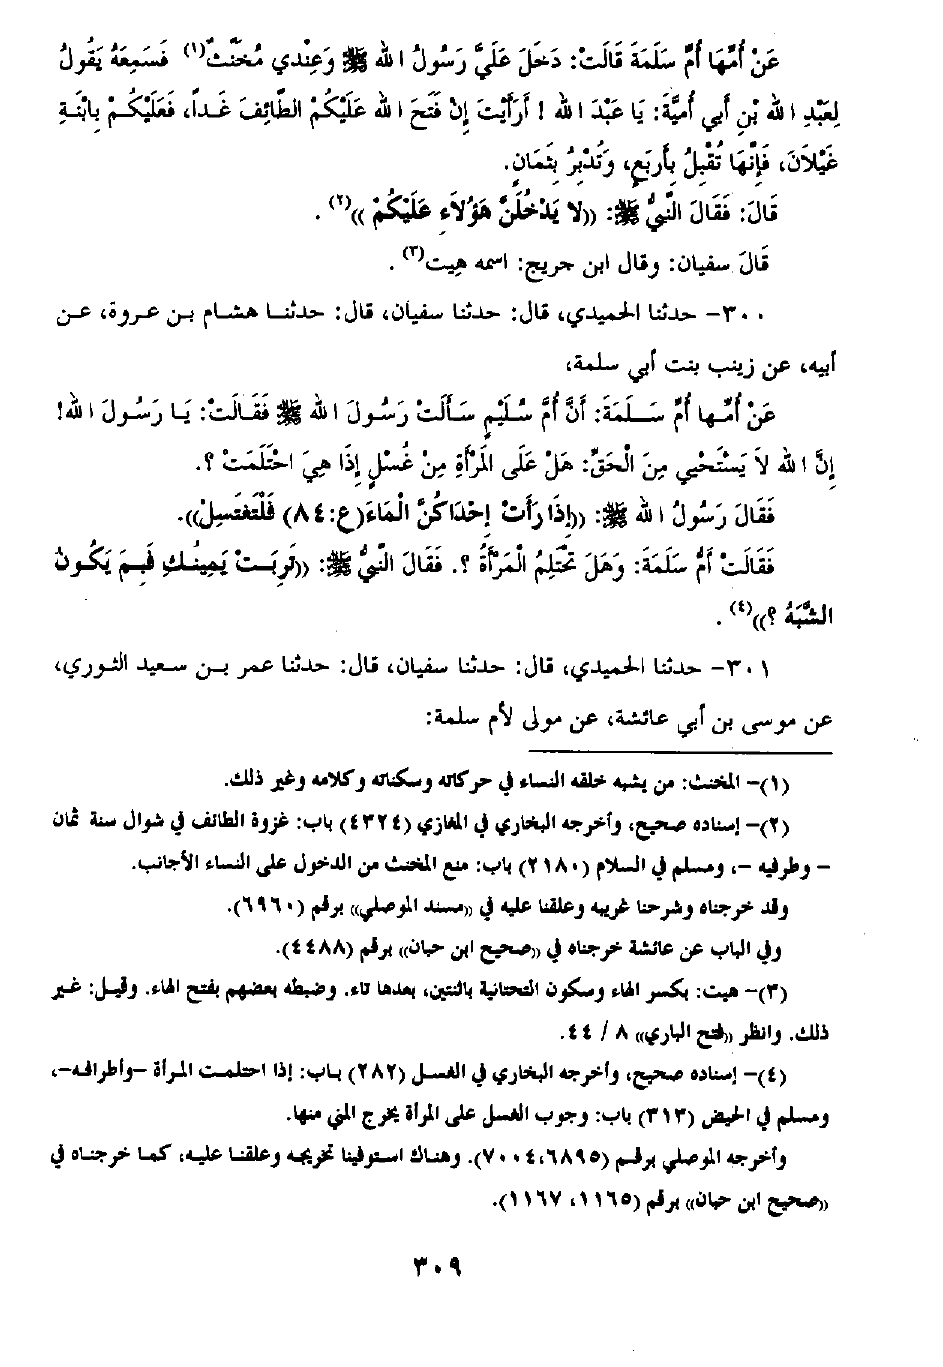 عَنْ أُمِّهَا أُمِّ سَلَمَةَ قَالَتْ: دَخَلَ عَلَيَّ رَسُولُ الله ﷺ وَعِنْدِي مُخَنَّثٌ(١) فَسَمِعَهُ يَقُولُ
لِعَبْدِ الله بْنِ أَبِي أُمَيَّةَ: يَا عَبْدَ الله ! أَرَأَيْتَ إِنْ فَتَحَ الله عَلَيْكُمْ الطَّائِفَ غَداً، فَعَلَيْكُمْ بِابْنَةِ
غَيْلاَنَ، فَإِنَّهَا تُقْبِلُ بِأَرْبَعٍ، وَتُدْبِرُ بِثَمَانٍ.
قَالَ: فَقَالَ النَّبِيُّ ﷺ: ((لا يَدْخُلَنَّ هَؤُلاَءِ عَلَيْكُمْ ))(٢) .
قَالَ سفيان: وقال ابن جريج: اسمه هِيت(٣) .
٣٠٠- حدثنا الحميدي، قال: حدثنا سفيان، قال: حدثنا هشام بن عروة، عن
أبيه، عن زينب بنت أبي سلمة،
عَنْ أُمِّها أُمِّ سَلَمَةَ: أَنَّ أُمَّ سُلَيْمٍ سَأَلَتْ رَسُولَ الله ﷺ فَقَالَتْ: يَا رَسُولَ الله!
إِنَّ الله لاَ يَسْتَحْيِي مِنَ الْحَقِّ: هَلْ عَلَى الْمَرْأَةِ مِنْ غُسْلٍ إِذَا هِيَ احْتَلَمَتْ ؟.
فَقَالَ رَسُولُ الله ﷺ: ((إِذَا رَأَتْ إِحْدَاكُنَّ الْمَاءَ(ع:٨٤) فَلْتَغْتَسِلْ)).
فَقَالَتْ أُمُّ سَلَمَةَ: وَهَلْ تَحْتَلِمُ الْمَرْأَةُ ؟. فَقَالَ النَّبِيُّ ﷺ: ((تَرِبَتْ يَمِينُكِ فَبِمَ يَكُونُ
الشَّبَهُ ؟))(٤) .
٣٠١- حدثنا الحميدي، قال: حدثنا سفيان، قال: حدثنا عمر بن سعيد الثوري،
عن موسى بن أبي عائشة، عن مولى لأم سلمة:
(١)- المخنث: من يشبه خلقه النساء في حركاته وسكناته وكلامه وغير ذلك.
(٢)- إسناده صحيح، وأخرجه البخاري في المغازي (٤٣٢٤) باب: غزوة الطائف في شوال سنة ثمان
- وطرفيه -، ومسلم في السلام (٢١٨٠) باب: منع المخنث من الدخول على النساء الأجانب.
وقد خرجناه وشرحنا غريبه وعلقنا عليه في ((مسند الموصلي)) برقم (٦٩٦٠).
وفي الباب عن عائشة خرجناه في ((صحيح ابن حبان)) برقم (٤٤٨٨).
(٣)- هيت: بكسر الهاء وسكون التحتانية بالنتين، بعدها تاء. وضبطه بعضهم بفتح الهاء. وقيل: غير
ذلك. وانظر ((فتح الباري)) ٨ / ٤٤.
(٤)- إسناده صحيح، وأخرجه البخاري في الغسل (٢٨٢) باب: إذا احتلمت المرأة -وأطرافه-،
ومسلم في الحيض (٣١٣) باب: وجوب الغسل على المرأة بخرج المني منها.
وأخرجه الموصلي برقم (٦٨٩٥،٧٠٠٤). وهناك استوفينا تخريجه وعلقنا عليه، كما خرجناه في
((صحيح ابن حبان)) برقم (١١٦٥، ١١٦٧).
٣٠٩